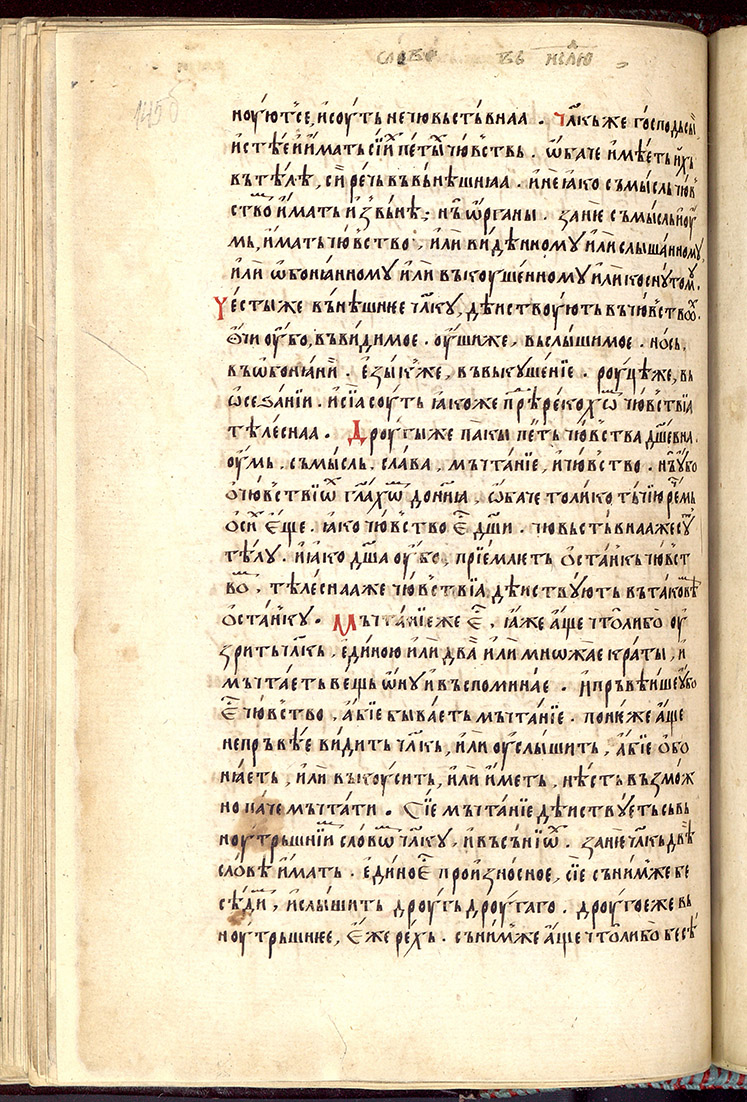 слово въ нє҃лю
145б
ноуютсе, и соуть нечювьствънаа. Чл҃къже господьсы
и стѣе и имать сїи петы чювствь. ѡбаче имѣеть ихъ
въ тѣлѣ, си речь въ вънѣшнꙗа. и не ꙗко съмысль чюв
ство имать и зьвьнѣ; нъ ѡрганы. занїе съмысль и оу
мь, имать чювство, или видѣнному или слышанному,
или ѡбонꙗнному или въкоушенному или коснутому.
Чести же вънѣшнее чл҃ку, дѣиствоують въ чювство.
Ѻчи оубо, въ видимое. оуши же, вь слышимое. нось,
въ ѡбонꙗнїи. езыкже, въ въкушенїе. роуцѣже, вь
ѡсезанїи. и сїа соуть ꙗкоже прѣрекохѡ чювствїа
тѣлеснаа. Дроугы же пакы петь чювства дш҃евна.
оумь. съмысль. слава. мъчтанїе, и чювство. нъ убо
ѻ чювствїи гл҃ахѡ доница, ѡбаче толико тъчїю ремь
ѻ си еще. ꙗко чювство е҃ дш҃и. чювьствънааже су
тѣлу. и ꙗко дш҃а оубо, прїемлеть ѻстанкъ чювст
во, тѣлеснааже чювствїа, дѣиствують въ таковѣ
ѻстанку. Мъчтанїеже е҃, ꙗже аще что либо оу
зрить чл҃къ, единою или два или множае краты, и
мъчтаеть вещь ѡну и въспоминае. и прьвѣише убо
е҃ чювство, абїе бываеть мъчтанїе. понеже аще
не прьвѣе видить чл҃къ, или оуслышить, абїе ѻбо
нꙗеть, или въкоусить, или иметь, нѣсть възмож
но паче мъчтати. Сїе мъчтанїе дѣиствуеть сь вь
ноутрьшнїи словѡ чл҃ку, и въ сънїѡ. занїе чл҃къ двѣ
словѣ имать. едино е҃ произносное, сїе съ нимже бе
сѣди, и слышить дроугь дроугаго. дроугое же вь
ноутрьшнее, еже рехъ. съ нимже аще что либо бесѣ